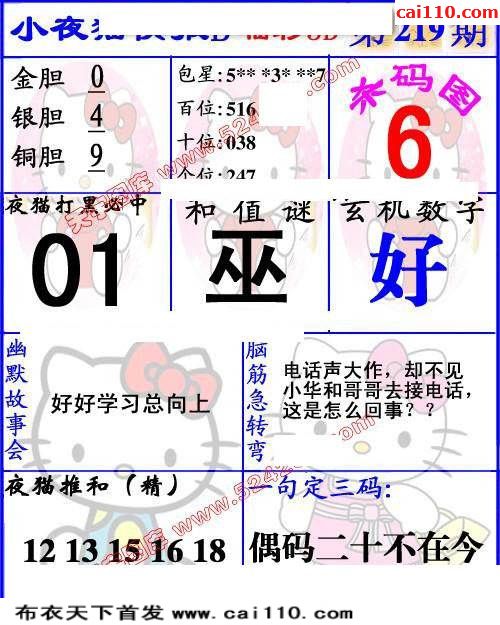 cai110.com
小夜猫
第219期
金胆 0
银胆 4
铜胆 9
包星:5** *3* **7
百位:516
十位:038
个位:247
来码图
6
夜猫打黑必中
01
和值谜
巫
玄机数字
好
幽默故事会
好好学习总向上
脑筋急转弯
电话声大作，却不见
小华和哥哥去接电话，
这是怎么回事？？
夜猫推和（精）
12 13 15 16 18
一句定三码:
偶码二十不在今
布衣天下首发 www.cai110.com